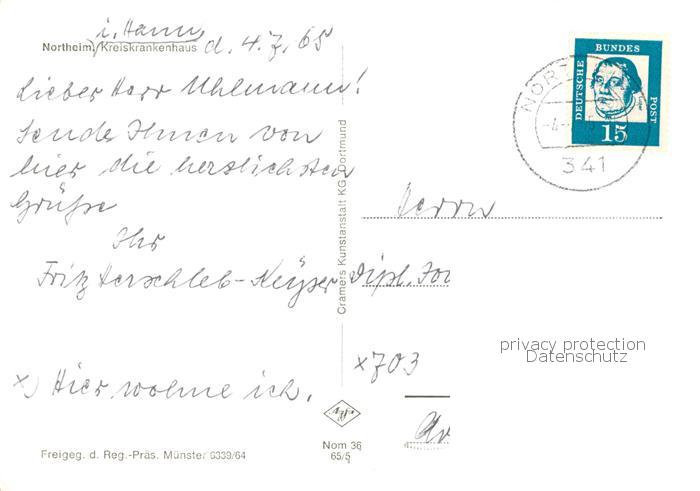 i. Hann.
Northeim, Kreiskrankenhaus d. 4.7.65
Lieber Herr Uhlmann!
Sende Ihnen von
hier die herzlichsten
Grüße
Ihr
Fritz Herschleb-Keyser
x) Hier wohne ich.
Freigeg. d. Reg.-Präs. Münster 6339/64
Cramers Kunstanstalt KG, Dortmund
Nom 36
65/5
DEUTSCHE BUNDES POST
15
NORT
341
Herrn
Dipl. For
x703
privacy protection
Datenschutz